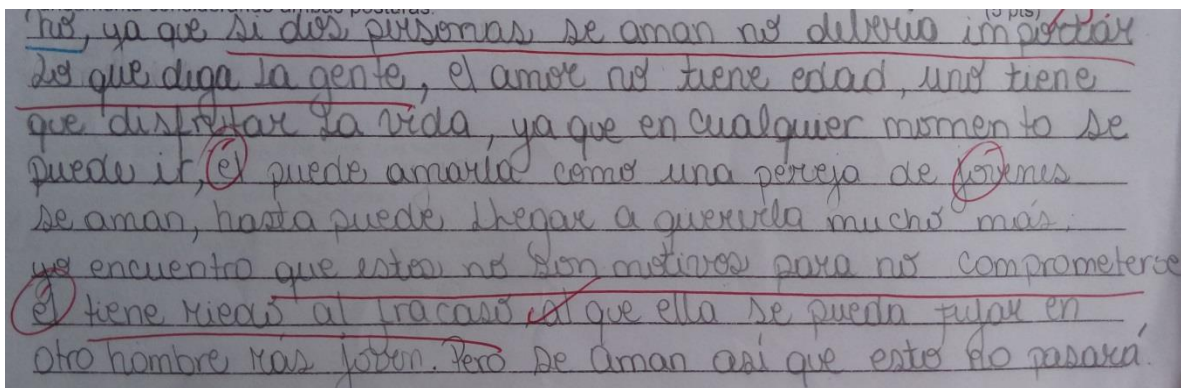 fundamenta considerando ambas posturas. (3 pts)
no, ya que si dos personas se aman no deberia importar
lo que diga la gente, el amor no tiene edad, uno tiene
que disfrutar la vida, ya que en cualquier momento se
puede ir, el puede amarla como una pereja de jovenes
se aman, hasta puede llegar a quererla mucho más.
yo encuentro que estos no son motivos para no comprometerse
el tiene miedo al fracaso al que ella se pueda fijar en
otro hombre más joven. Pero se aman así que esto no pasará.